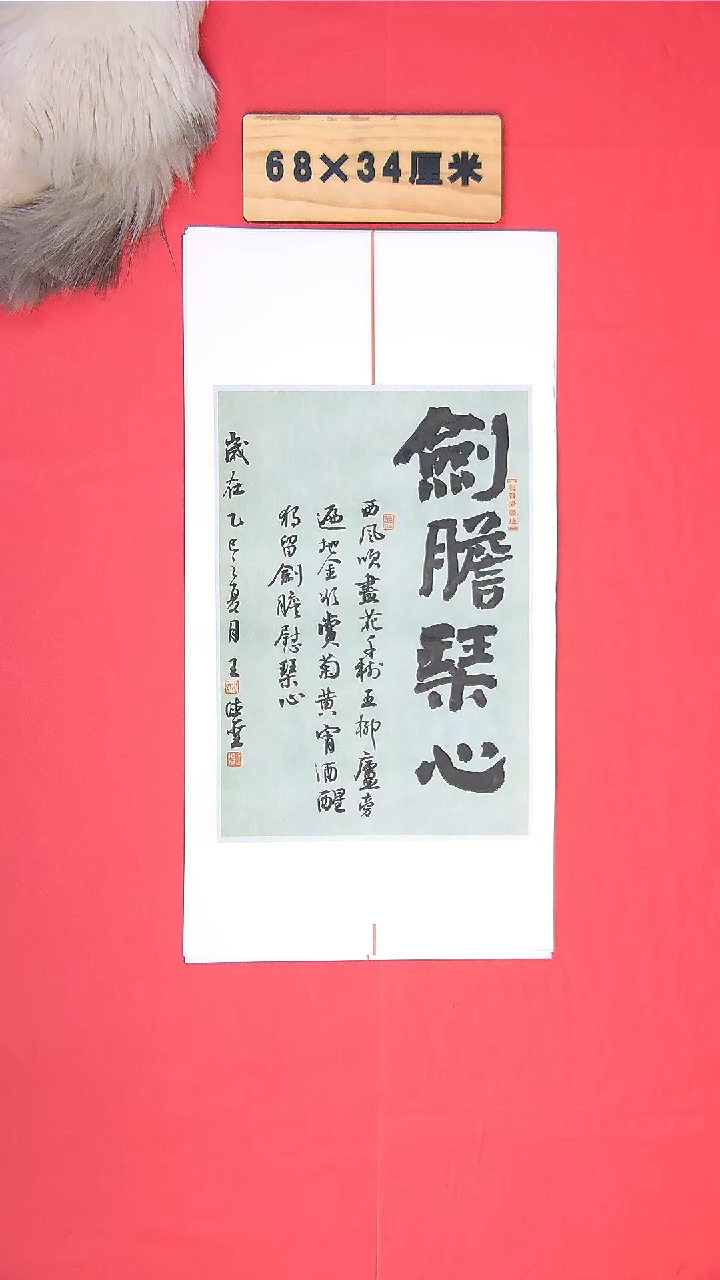 68×34厘米
劍膽琹心
西風吹盡花千樹五柳廬旁
遍地金欣賞菊黄宵酒醒
獨留劍膽慰琹心
歲在乙巳之夏月王